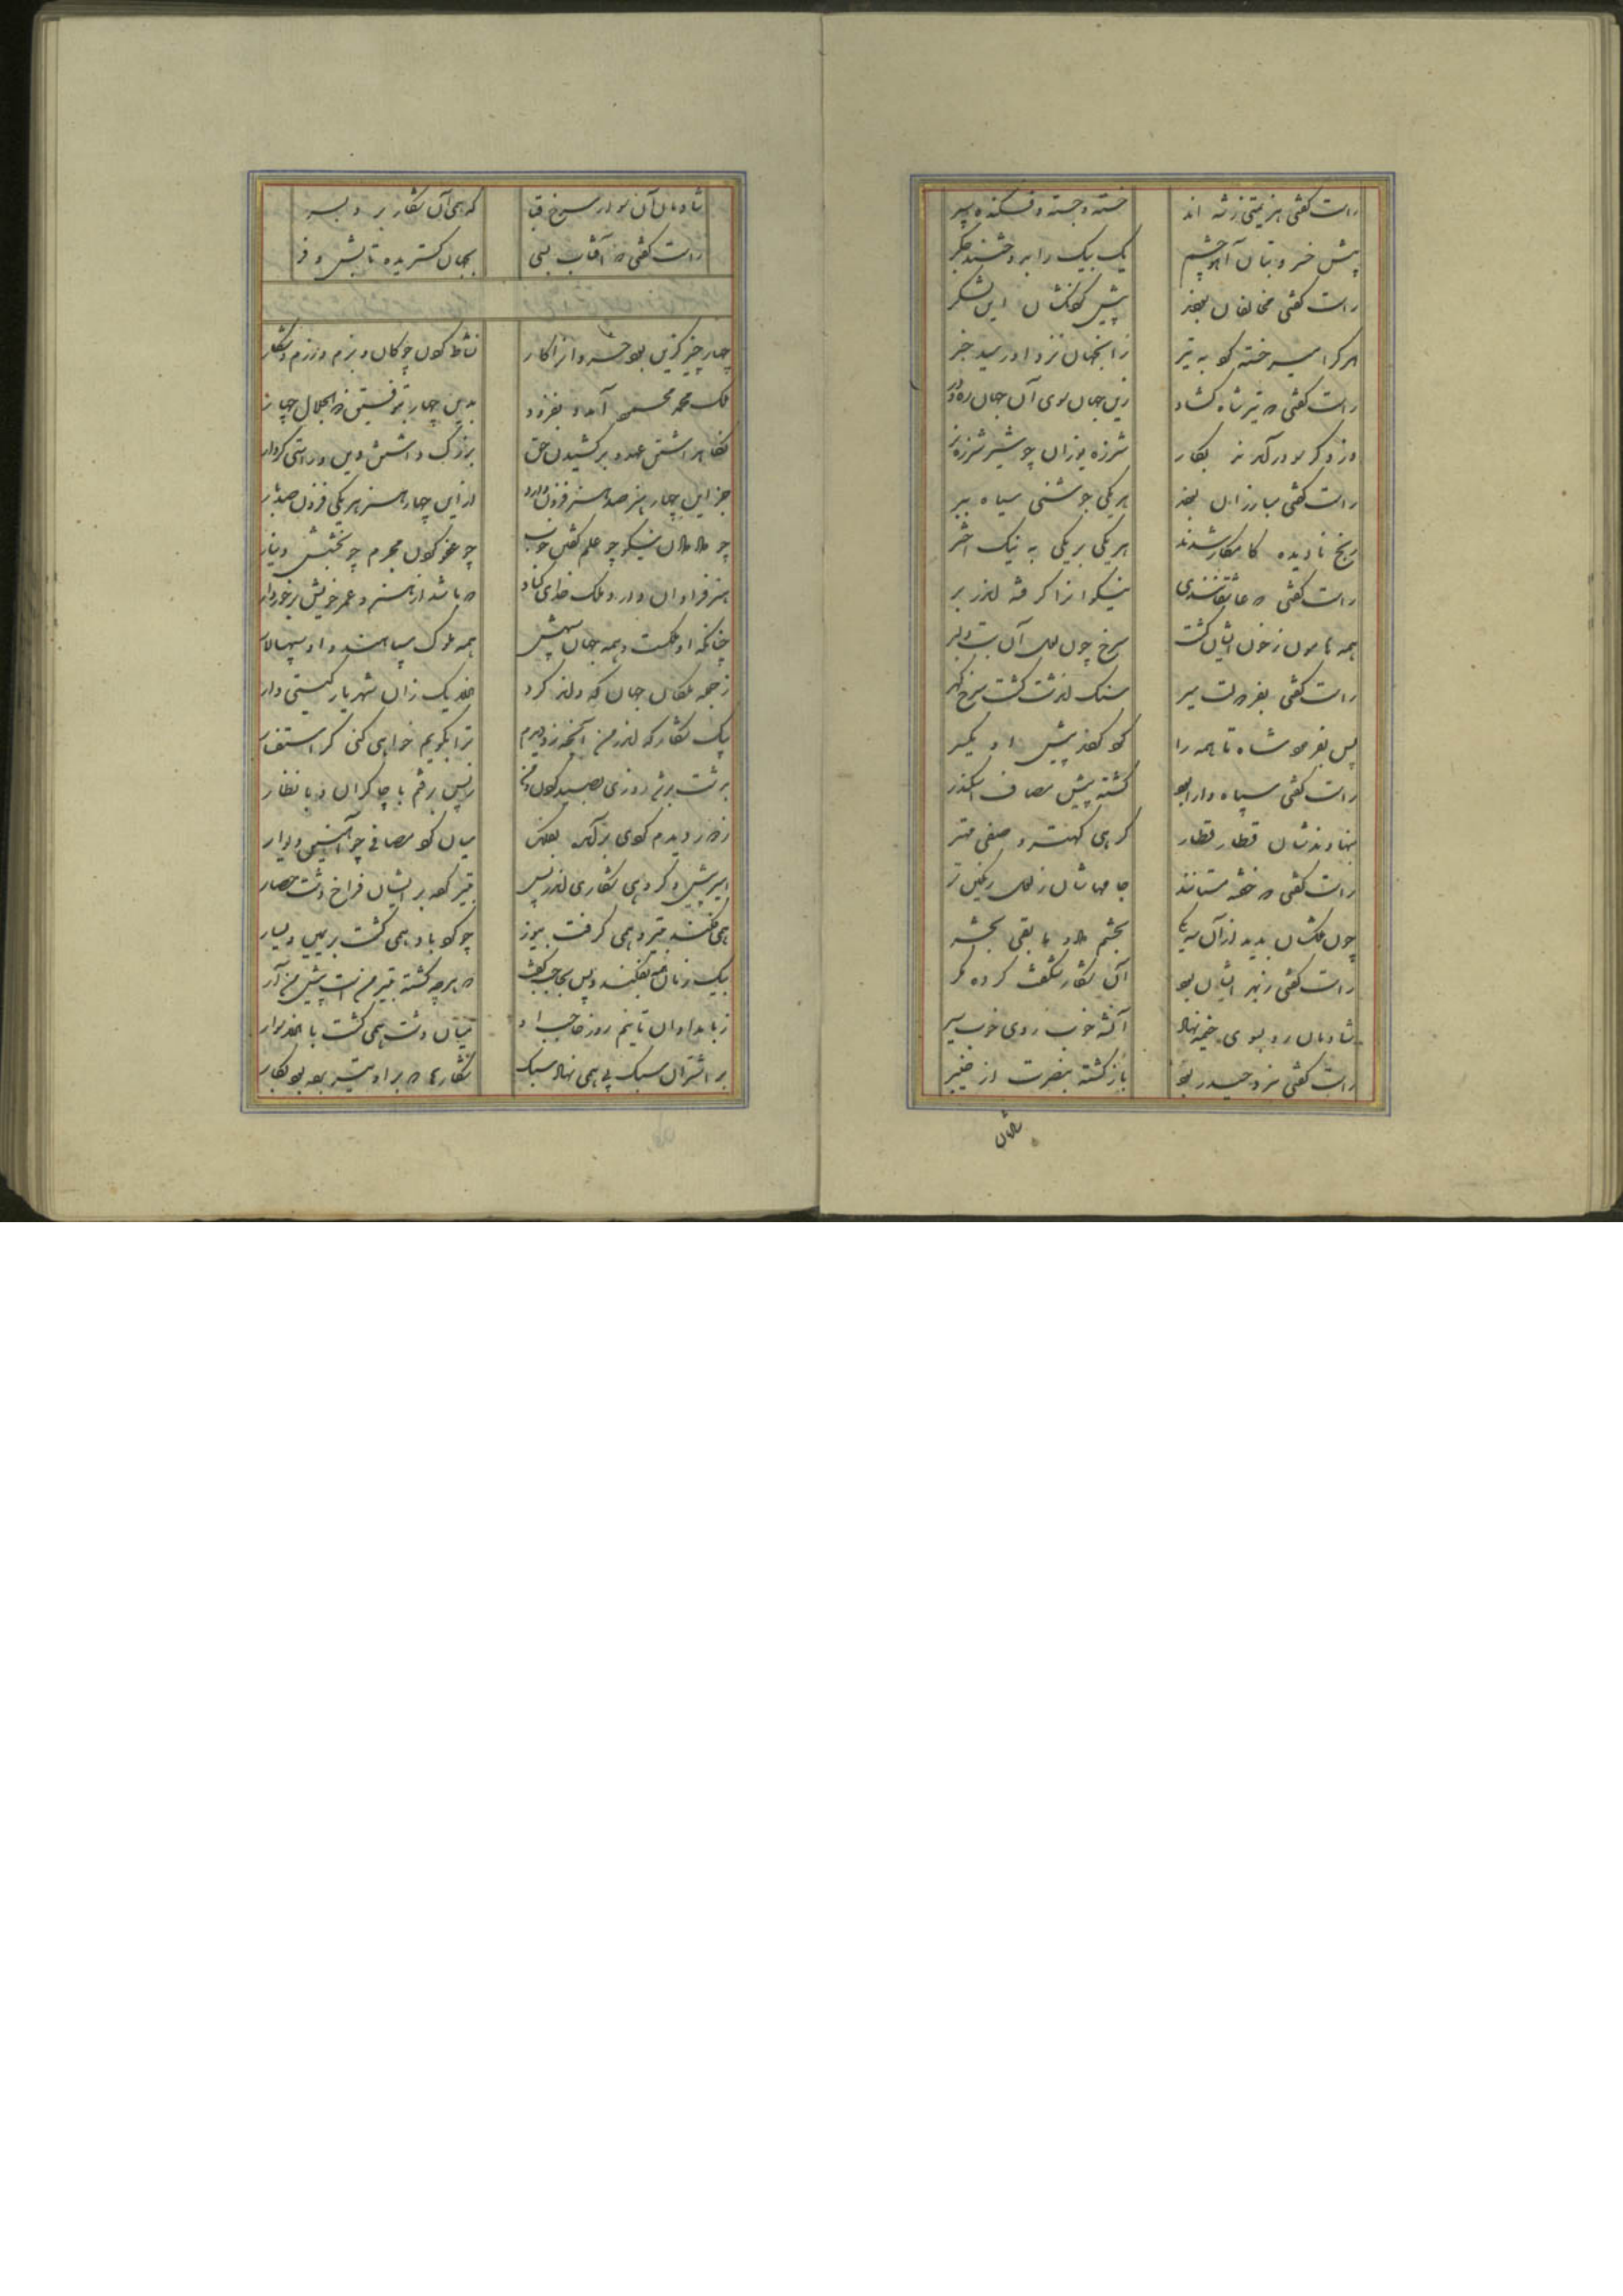 راست گفتی هزیمتی زشه اند خسته و جسته و فکنده سپر
پیش خسرو بتان آهو چشم یک بیک را بدوختند جگر
راست گفتی مخالفان بودند پیش گردنکشان این لشکر
هر کرا میر خسته کرد به تیر زانجهان نزد او رسید خبر
راست گفتی که تیر شاه گشاد زین جهان سوی آن جهان ره و در
وز دگر سو درآمدند بکار شرزه یوزان چو شیر شرزه نر
راست گفتی مبارزان بودند هر یکی جوشنی سیاه ببر
رنج نادیده کامکار شدند هر یکی بر یکی به نیک اختر
راست گفتی که عاشقانندی نیکوانرا گرفته اندر بر
همه هامون ز خون ایشان گشت سرخ چون لعل آن بت دلبر
راست گفتی بفر دولت میر سنگ آن دشت گشت سرخ گهر
پس بفرمود شاه تا همه را گرد کردند پیش او یکسر
راست گفتی سپاه دارا بود کشته پیش مصاف اسکندر
بنهادندشان قطار قطار گرهی کهتر و صفی مهتر
راست گفتی که خفته مستانند جامهاشان ز لعل رنگین تر
چون ملکشان بدید از آن سه یکی بحشم داد و ما بقی بحشر
راست گفتی ز بهر ایشان بود آن شکار شگفت کرده مگر
شادمان رو بسوی خیمه نهاد آن شه خوب روی خوب سیر
راست گفتی مرو حیدر بود بازگشته بنصرت از خیبر
شادمان
شادمان آن سوار سرخ قبا که همی آن شکار برد بسر
راست گفتی که آفتاب بسی بجهان گستریده تابش و فر
چهار چیز گزین بود خسروانرا کار نشاط کردن چوگان و بزم و رزم و شکار
ملک محمد محمود آمد و بفزود بدین چهار بتوفیق ذوالجلال چهار
نگاهداشتن عهد و برکشیدن حق بزرگ داشتن دین و راستی گفتار
جز این چهار هنر صد هنر فزون دارد از این چهار هنر هر یکی فزون صدبار
چو داد دادن نیکو چو علم گفتن خوب چو عفو کردن مجرم چو بخشش دینار
هنر فراوان دارد ملک خدای کناد که باشد از هنر و عمر خویش برخوردار
چنانکه او ملکست و همه جهان سپهش همه ملوک سپاهند و او سپهسالار
ز جمله ملکان جهان که داند کرد هزار یک زان شهریار گیتی دار
بیک شکارگه اندر من آنچه زو دیدم ترا بگویم خواهی کنی گر استفسار
بدشت برشد روزی بصید کردن و من ز پس برفتم با چاکران و با نظار
ز دور دیدم گردی برآمده بفلک میان گرد مصافی چو آهنین دیوار
امیر پیش و گروهی شکاری اندر پیش بتیر کرده بر ایشان فراخ دشت حصار
همی فکند بتیر و همی گرفت بیوز چو گرد باد همی گشت بر یمین و یسار
بیک زمان همه بفکند و پس بحاجب گفت که هر چه کشته تیر منست پیش من آر
ز بامدادان تا نیم روز حاجب او میان دشت همی گشت با هزار سوار
بر اشتران سبک پی همی نهاد سبک شکارها که بر او تیر برده بود بکار